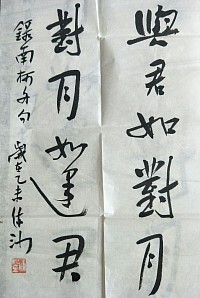 與君如對月
對月如逢君
錄南柯舟句
歲在乙未